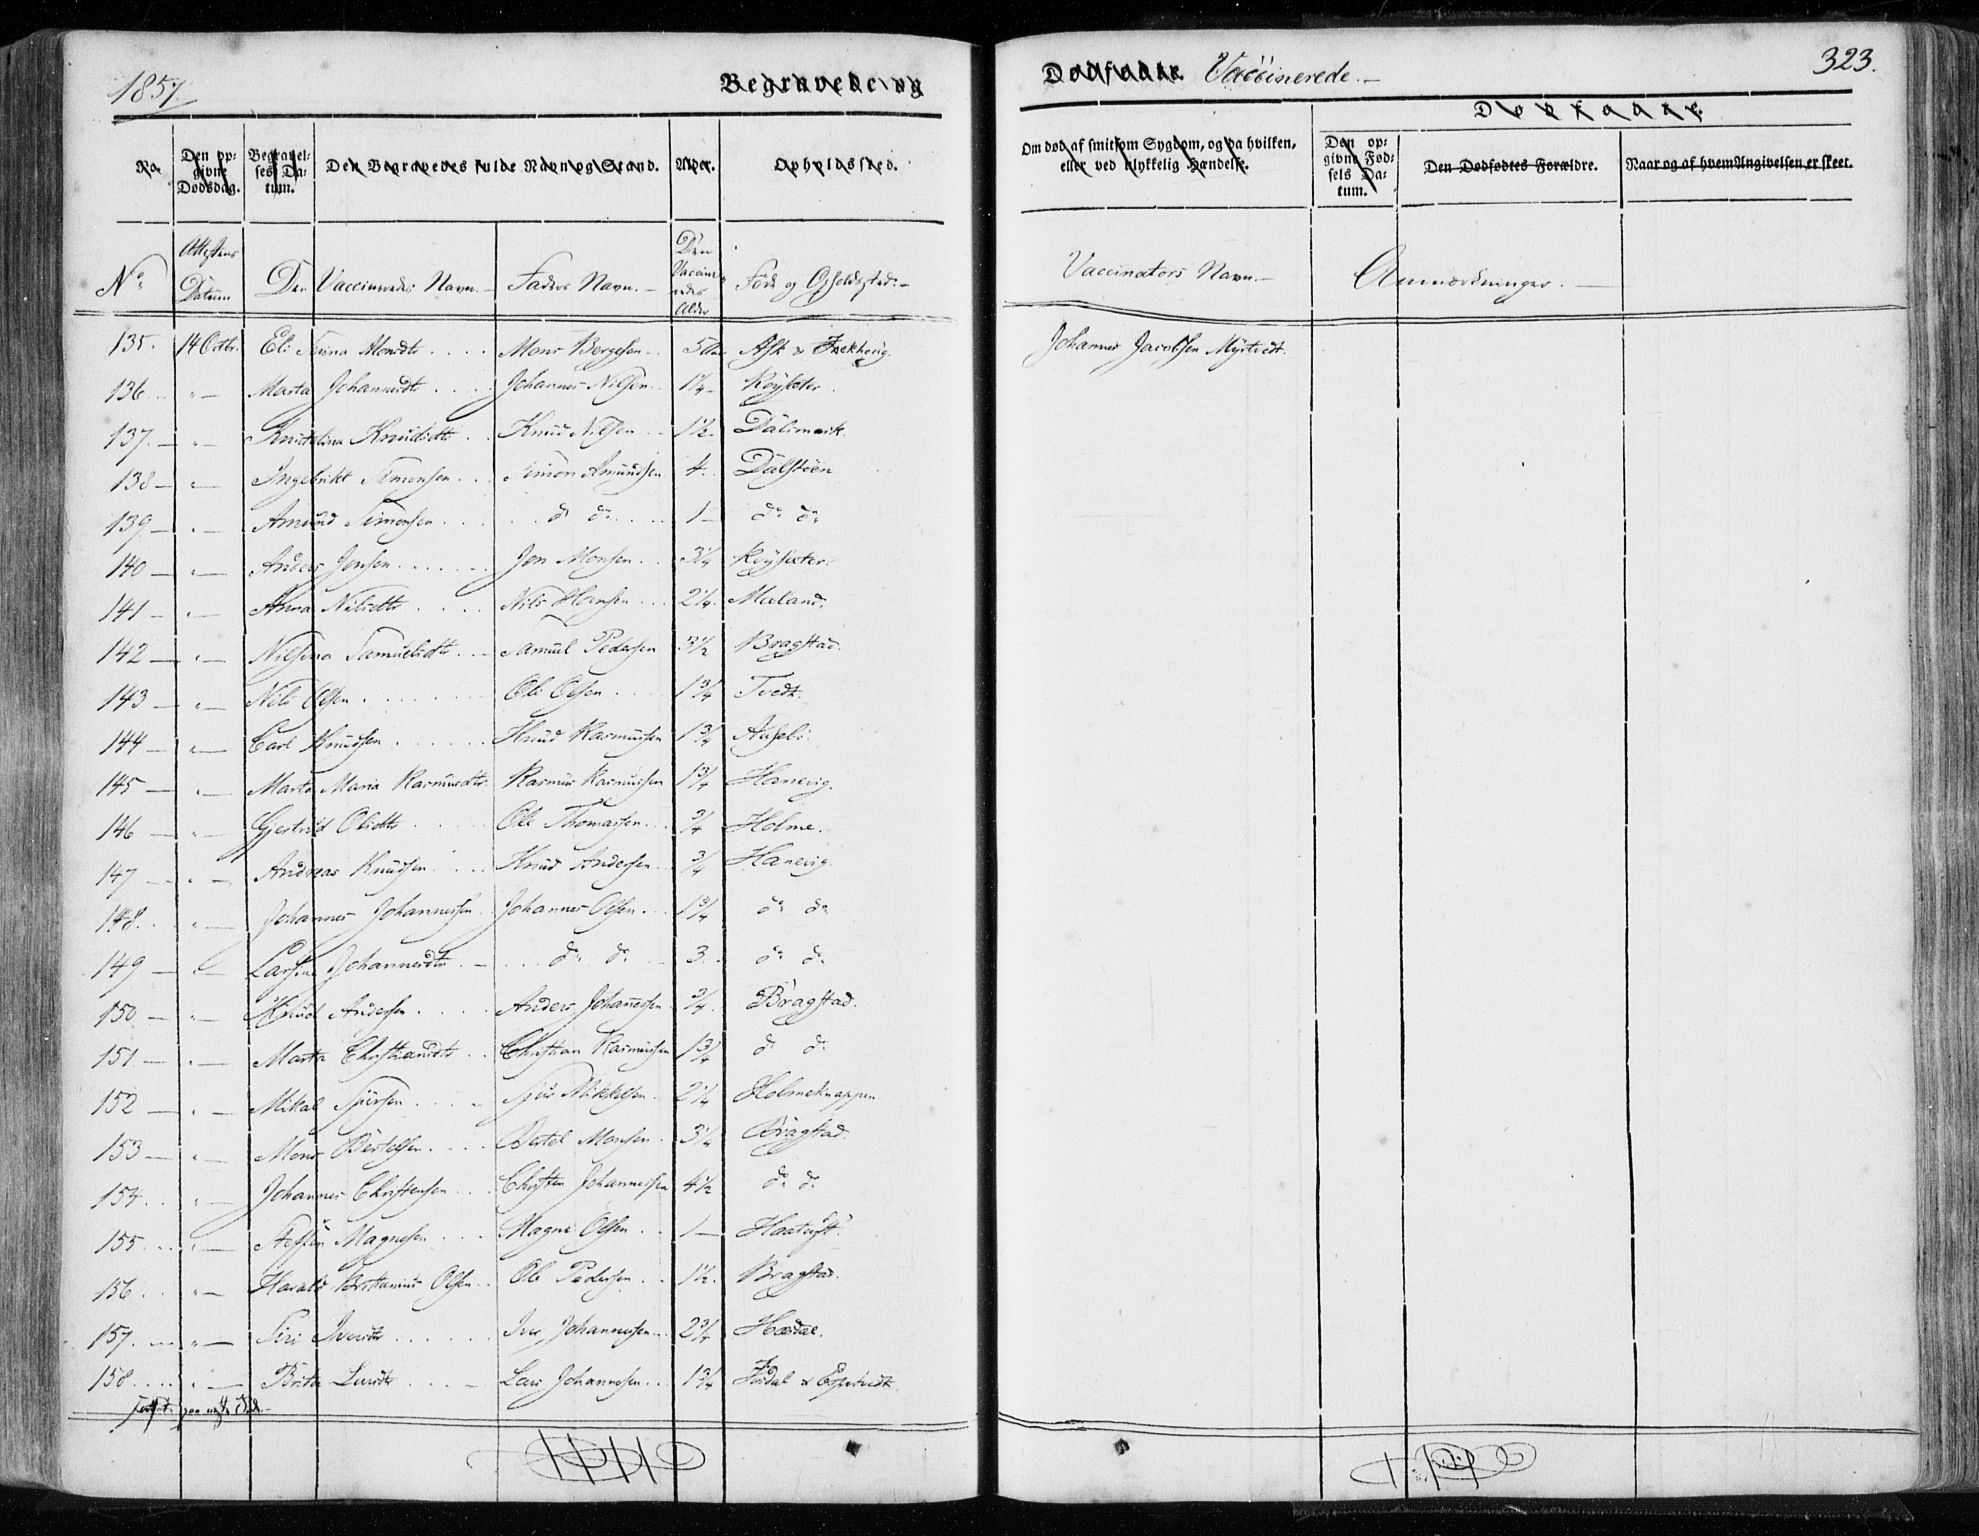 1857.
Begravede og
Dødfødte. Vaccinerede.—
323.
No
Den opgivne Dødsdag.
Begravelses Datum.
Den Begravedes fulde Navn og Stand.
Alder.
Opholdssted.
Om død af smitsom Sygdom, og da hvilken, eller ved ulykkelig Hændelse.
Dødfødte.
Den opgivne Fødsels Datum.
Den Dødfødtes Forældre.
Naar og af hvem Angivelsen er skeet.
No Attestens Datum Den Vaccineredes Navn.— Faders Navn.— Den Vaccineredes Alder Føde og Opholdssted.—
Vaccinators Navn.— Anmærkninger.—
135. 14 Octbr. Eli Monsdtr .... Mons Bergesen 5 Ask &
Johannes Jacobsen Myrtvedt.
136 " — Marta Johannesdtr .... Johannes Nilsen 1¼ Røysæter
137 — " — Knudsdtr .. Knud Nilsen 1½ Dalsmark
138 — " — Ingebrikt Simonsen ... Simon Amundsen 4. Dalstøen
139 — " — Amund Simonsen .... do do .... 1 — do do
140 — " — Anders Jonsen ...... Jon Monsen .. 3¼ Røysæter
141 — " — Anna Nilsdtr .... Nils Hansen ... 2¼ Mæland.
142 — " — Nilsina Samuelsdtr .. Samuel Pedersen 3½ Bragstad.
143 — " — Nils Olsen ...... Ole Olsen .... 1¾ Tvedt.
144 — " — Carl Knudsen ...... Knud Rasmussen 1¾
145 — " — Marta Maria Rasmusdtr Rasmus Rasmussen 1¾ Hanevig.
146 — " — Gjertrud Olsdtr .... Ole Thomassen .. ¾ Holme.
147 — " — Andreas Knudsen .... Knud Andersen .. ¾ Hanevig
148. . " — Johannes Johannessen Johannes Olsen ... 1¾ do do
149 — " — Larsine Johannesdtr . — ... do do — 3 do do
150 — " — Knud Andersen .... Anders Johannessen ¾ Bragstad.
151 — " — Marta Christiansdtr .. Christian Rasmussen 1¾ do do
152 — " — Mikal Sjursen .... Sjur Mikkelsen . 2¼ Holmeknappen
153 — " — Mons Bertelsen .... Bertel Monsen . 3¼ Bragstad.
154 . . " — Johannes Christensen .. Christen Johannessen 4½ do do
155 ... " — Magnesen ... Magne Olsen .. 1 — Haatuft.
156 . . " — Harald Olsen .. Ole Pedersen .. 1½ Bragstad.
157. ... " — Siri Iversdtr ...... Iver Johannessen .. 2¾ Hosdal.
158 .... " — Brita Larsdtr .... — Lars Johannesen ... 1¾
Fortsat paa næste Side.—